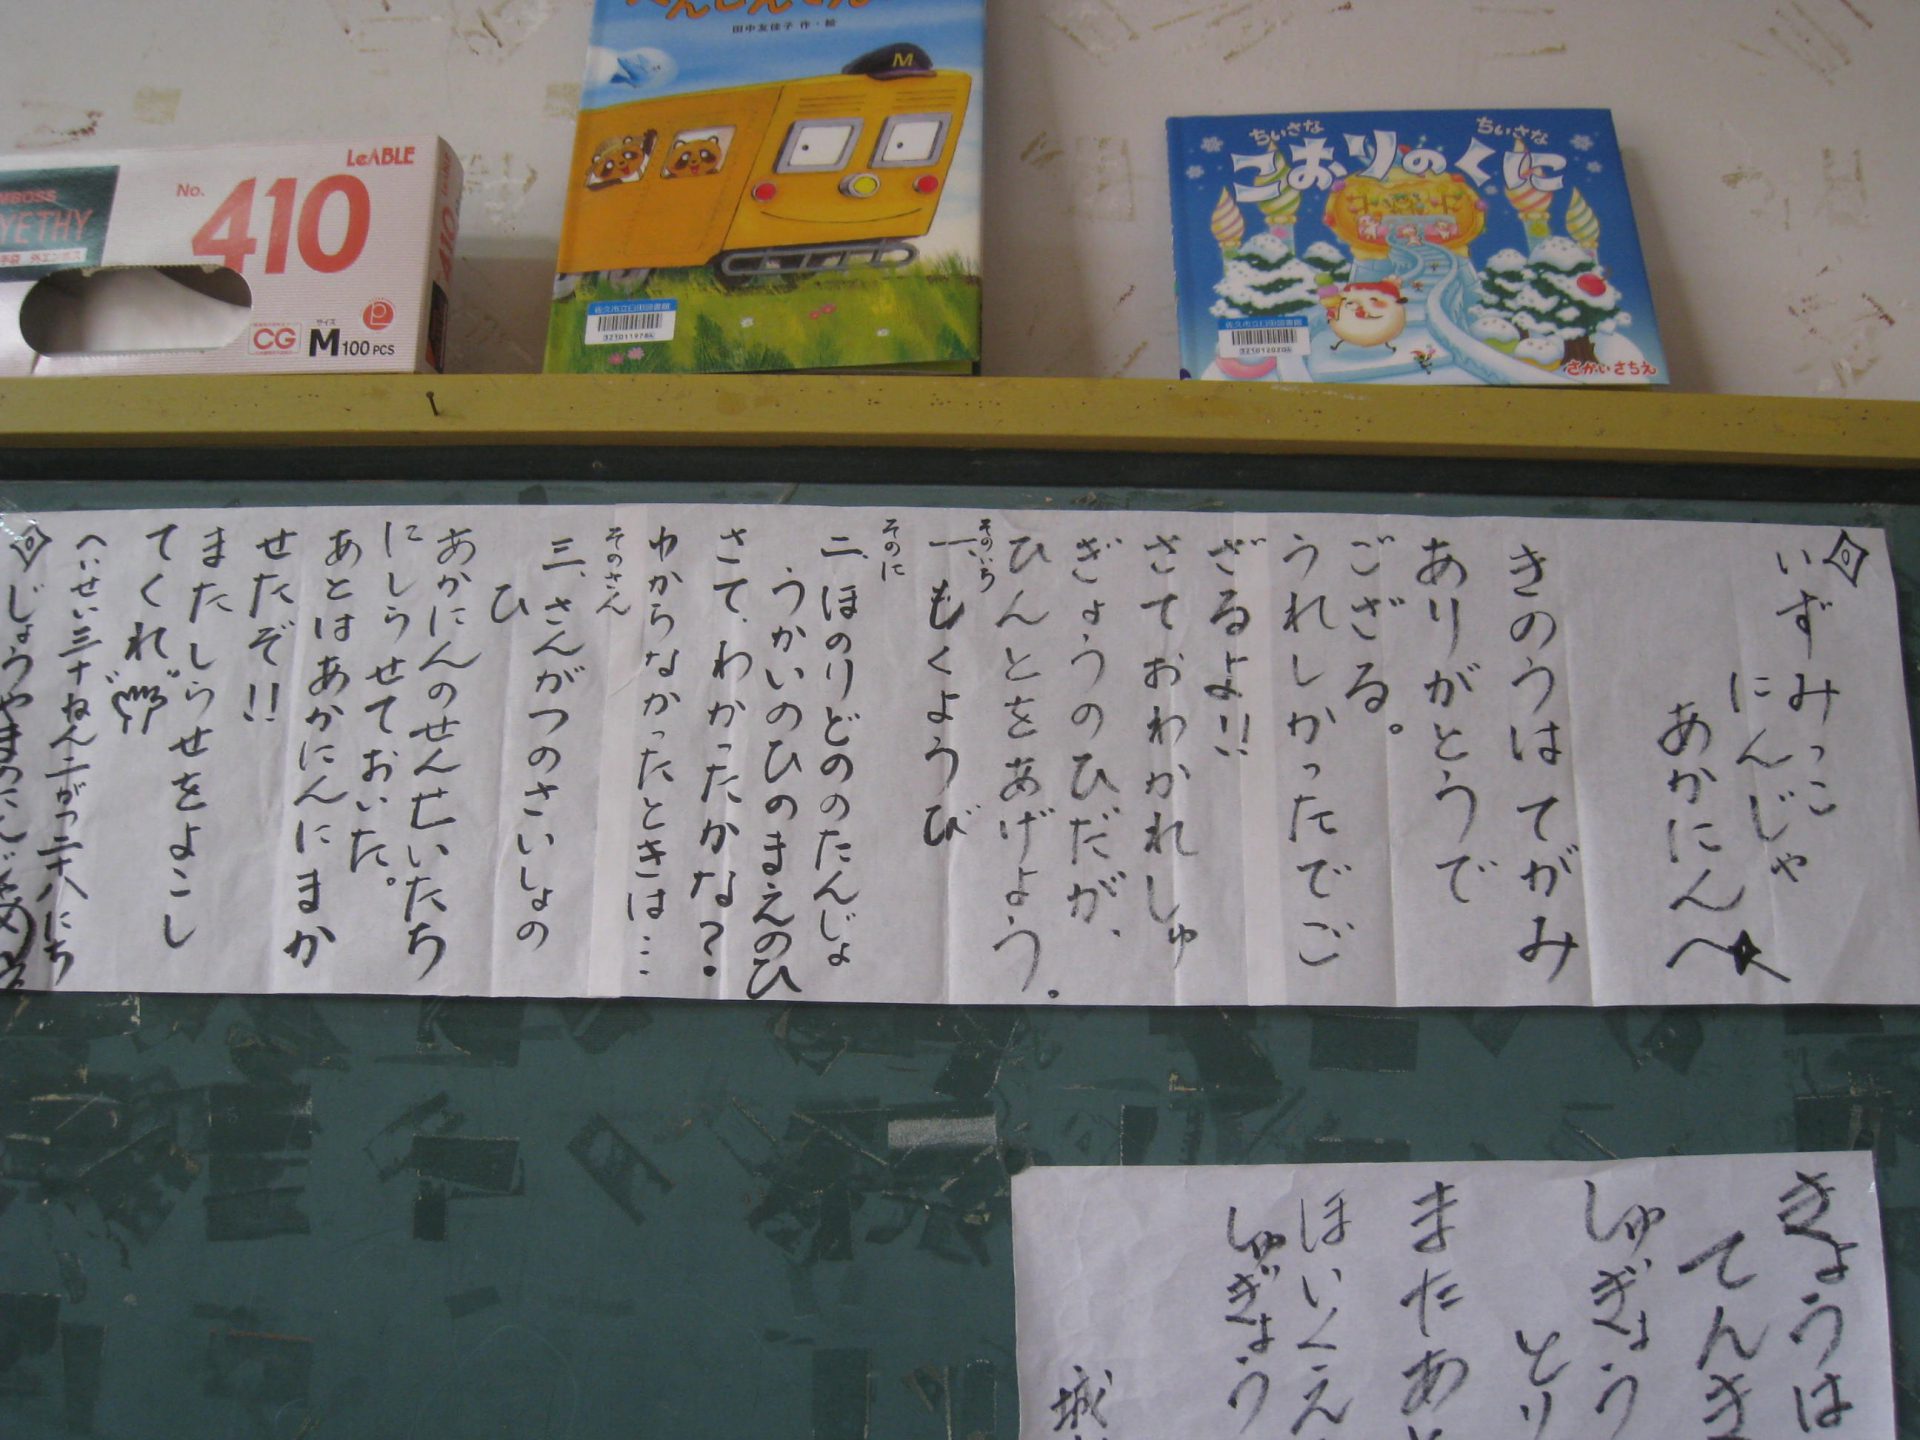 LeABLE
No.
410
MBOSS
YETHY
手袋 外エンボス
CG
サイズ
M 100 PCS
410
田中友佳子 作・絵
M
佐久市立臼田図書館
ちいさな ちいさな
こおりのくに
佐久市立臼田図書館
さかいさちえ
いずみっこ
にんじゃ
あかにんへ
きのうはてがみ
ありがとうで
ござる。
うれしかったでご
ざるよ!!
さておわかれしゅ
ぎょうのひだが、
ひんとをあげよう。
そのいち
一、もくようび
そのに
二、ほのりどののたんじょ
うかいのひのまえのひ
さて、わかったかな?
わからなかったときは…
そのさん
三、さんがつのさいしょの
ひ
あかにんのせんせいたち
にしらせておいた。
あとはあかにんにまか
せたぞ!!
またしらせをよこし
てくれ
へいせい三十ねん二がつ二十八にち
きょうは
てんき
しゅぎょう
とり
またあ
ほいくえ
しゅぎょう
城